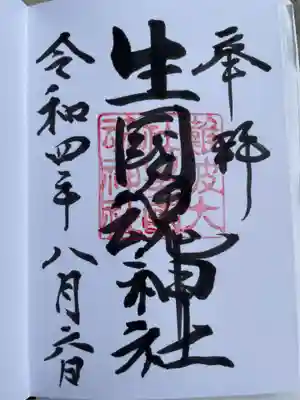 奉拝
生國魂神社
令和四年八月六日
難波大